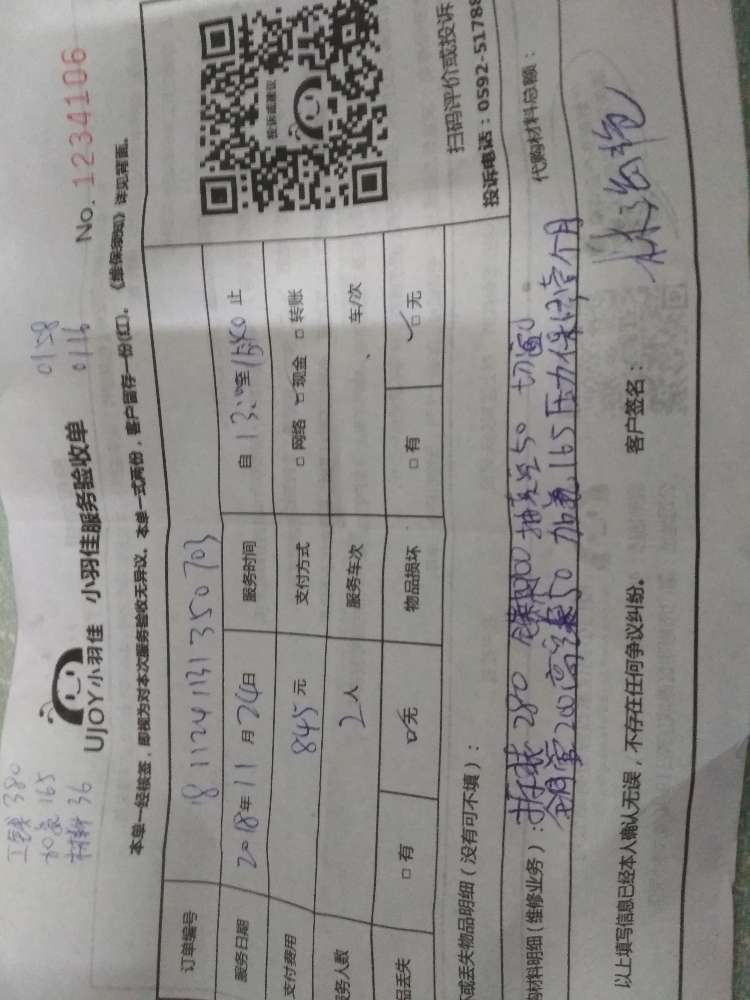 工钱 380
加氟 165
材料 36
0158
0116
UJOY小羽佳 小羽佳服务验收单
No. 1234106
本单一经核签，即视为对本次服务验收无异议。本单一式两份，客户留存一份(红)。《维保须知》详见背面。
订单编号 81124113135 0703
服务日期 2018年11月24日 服务时间 自13:00至15:40止
支付费用 845元 支付方式 □网络 □现金 □转账
服务人数 2人 服务车次 车/次
品丢失 □有 □无 物品损坏 □有 □无
投诉或建议
扫码评价或投诉
投诉电话：0592-51788
坏或丢失物品明细（没有可不填）：
购材料明细(维修业务)：拆装280 抽真空50
代购材料总额：
铜管200 50 加氟165 压力保 个月
以上填写信息已经本人确认无误，不存在任何争议纠纷。 客户签名：